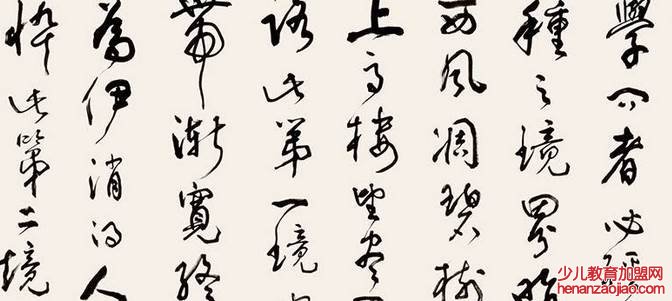 學問者必經
種之境界昨
西風凋碧樹
上高樓望盡
路此第一境
帶漸寬終
為伊消得人
悴此第二境
少儿教育加盟网
henanzaojiao.com